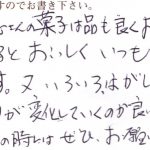 すのでお書き下さい。
ちゃんの菓子は品も良くお
るとおいしくいつも
す。又いろいろはがし
りが変化していくのが良い
の時には ぜひ、お